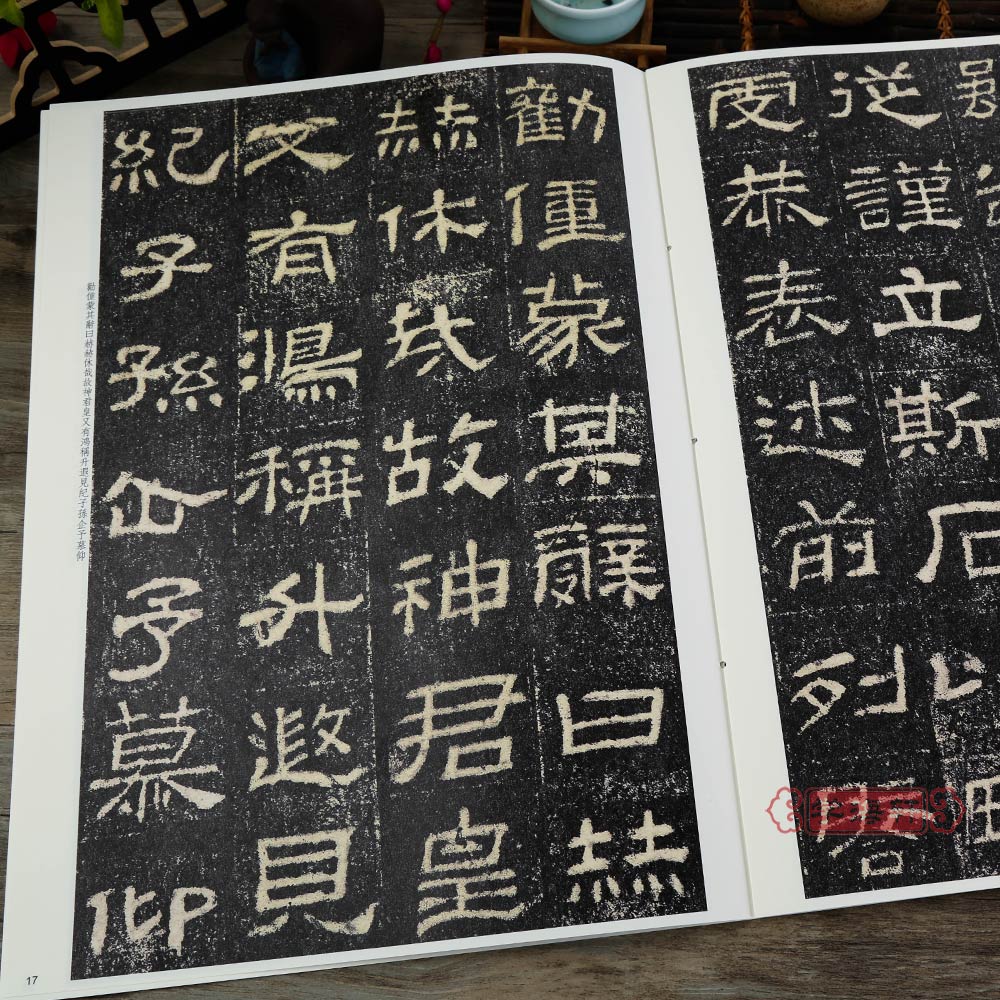 從謹立斯石以
虔恭表述前列啓
勸僮蒙其辭曰赫
赫休哉故神君皇
又有鴻稱升遐見
紀子孫企予慕仰
勸僮蒙其辭曰赫赫休哉故神君皇又有鴻稱升遐見紀子孫企予慕仰
17